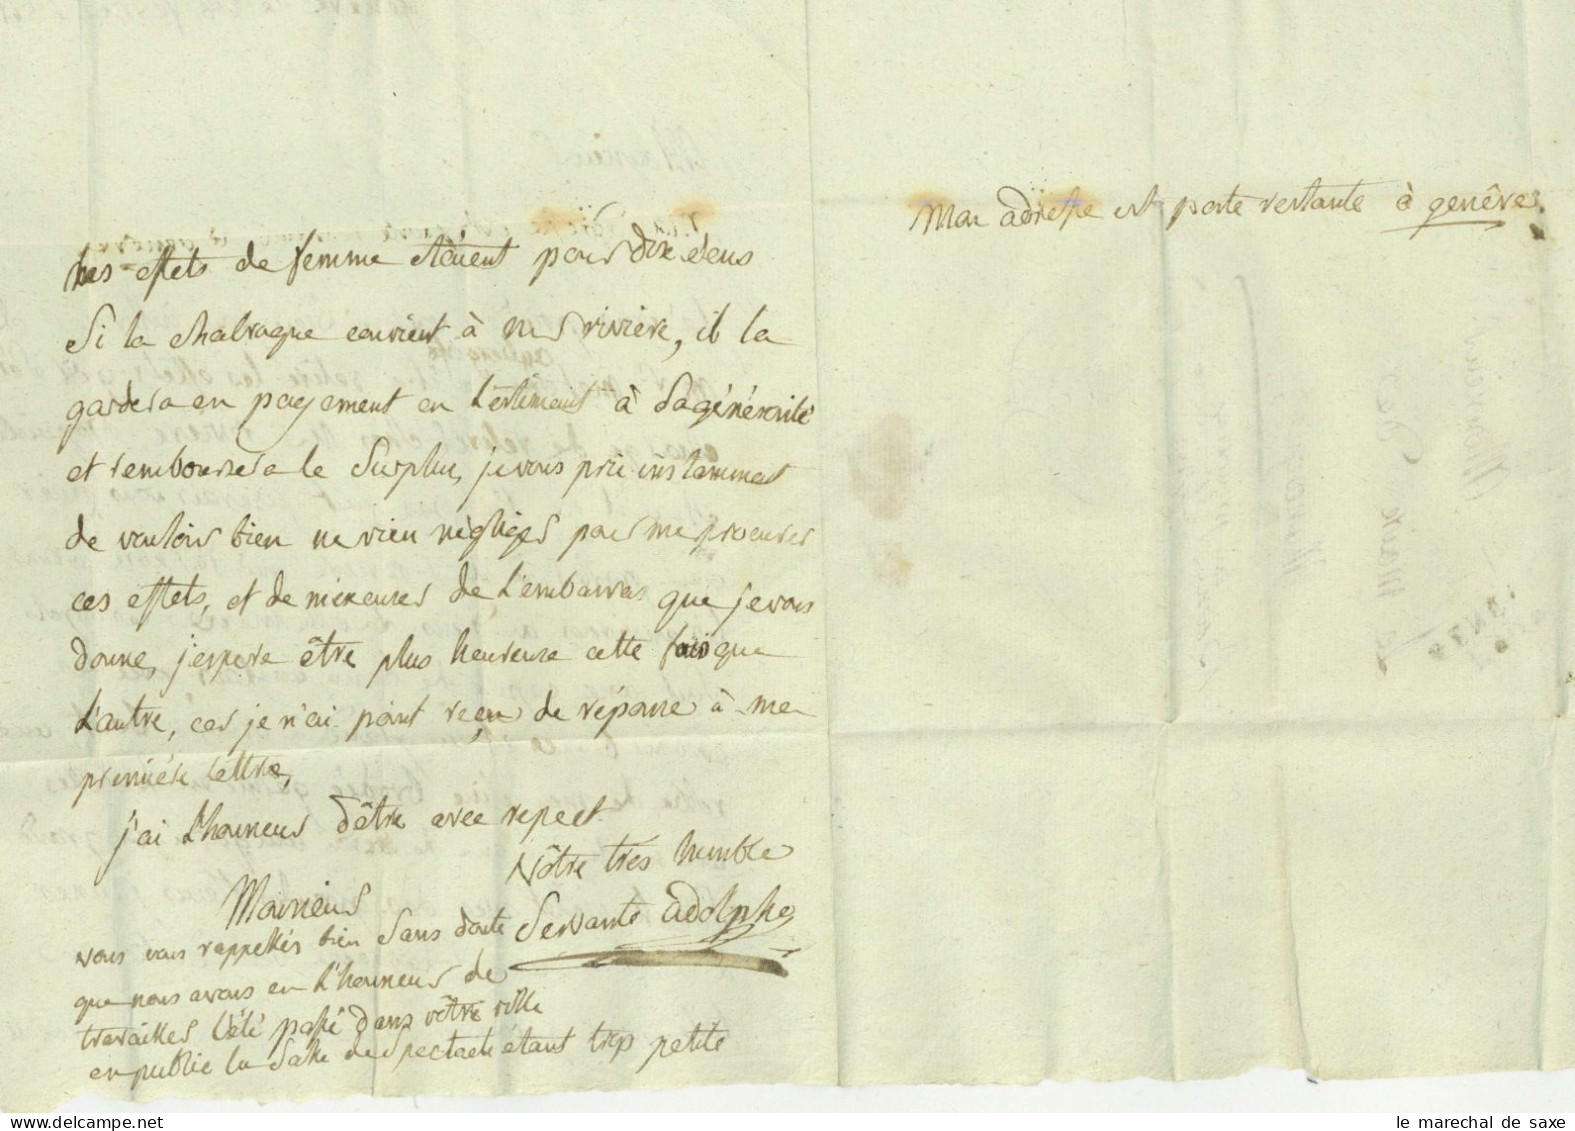 Mon adresse est poste restante à genêve
les effets de femme étaient pour dix écus
Si la chabraque convient à mr rivière, il la
gardera en payement en l'estimant à sa générosité
et remboursera le surplus, je vous prie instamment
de vouloir bien ne rien négliger pour me procurer
ces effets, et de m'excuser de l'embarras que je vous
donne, j'espere être plus heureuse cette fois que
l'autre, car je n'ai point reçu de réponse à ma
première lettre,
j'ai l'honneur d'être avec repect
Monsieur
Vôtre très humble
Servante adolphe
vous vous rappellés bien sans doute
que nous avons eu l'honneur de
travailler l'été passé dans vôtre ville
en public la salle de spectacle étant trop petite
le marechal de saxe